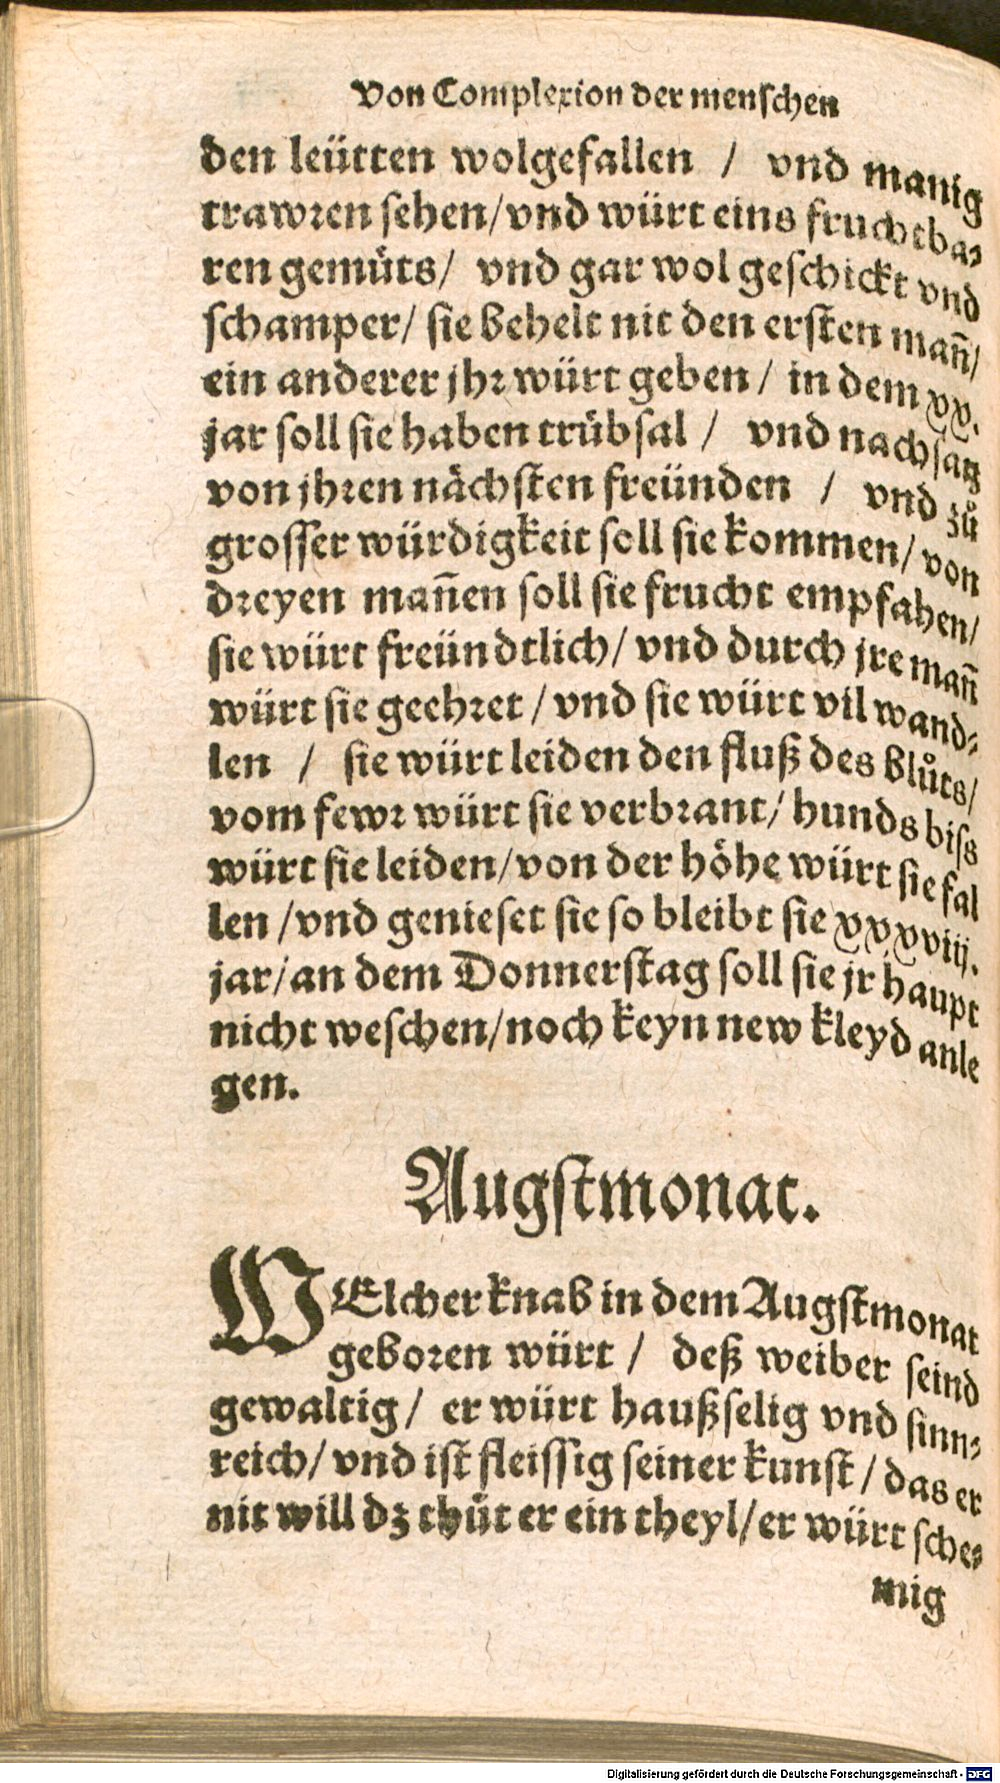 Von Complexion der menschen
den leütten wolgefallen / vnd manig
trawren sehen/vnd würt eins fruchtba-
ren gemüts/ vnd gar wol geschickt vnd
schamper/ sie behelt nit den ersten mañ/
ein anderer jhr würt geben / in dem xx.
jar soll sie haben trübsal / vnd nachsatz
von jhren nächsten freünden / vnd zů
grosser würdigkeit soll sie kommen/ von
dreyen mañen soll sie frucht empfahen/
sie würt freündtlich/ vnd durch jre mañ
würt sie geehret / vnd sie würt vil wand-
len / sie würt leiden den fluß des blůts/
vom fewr würt sie verbrant/ hunds biss
würt sie leiden/von der höhe würt sie fal
len /vnd genieset sie so bleibt sie xxxviij.
jar/an dem Donnerstag soll sie jr haupt
nicht weschen/noch keyn new kleyd anle
gen.
Augstmonat.
WElcher knab in dem Augstmonat
geboren würt / deß weiber seind
gewaltig/ er würt haußselig vnd sinn-
reich/ vnd ist fleissig seiner kunst / das er
nit will dz thůt er ein theyl/er würt sche-
mig
Digitalisierung gefördert durch die Deutsche Forschungsgemeinschaft - DFG